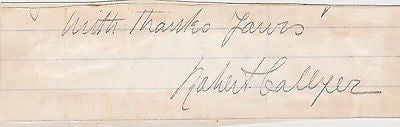 with Thanks Yours
Robert Collyer